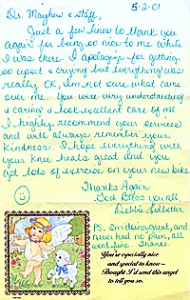 5-2-01
Dr. Mayhew & Staff,
Just a few lines to thank you
again for being so nice to me while
I was there. I apologize for getting
so upset & crying but everything was
really OK, I'm not sure what came
over me. You were very understanding
& caring & took excellent care of me
I highly recommend your services
and will always remember your
kindness. I hope everything with
your knee heals great and you
get lots of exercise on your new bike
Thanks Again
God Bless you all
Debbie Ledbetter
PS. Smiling great, and
never had no pain, all
went fine. Thanks.
You're especially nice
and good to know—
Thought I'd send this angel
to tell you so.